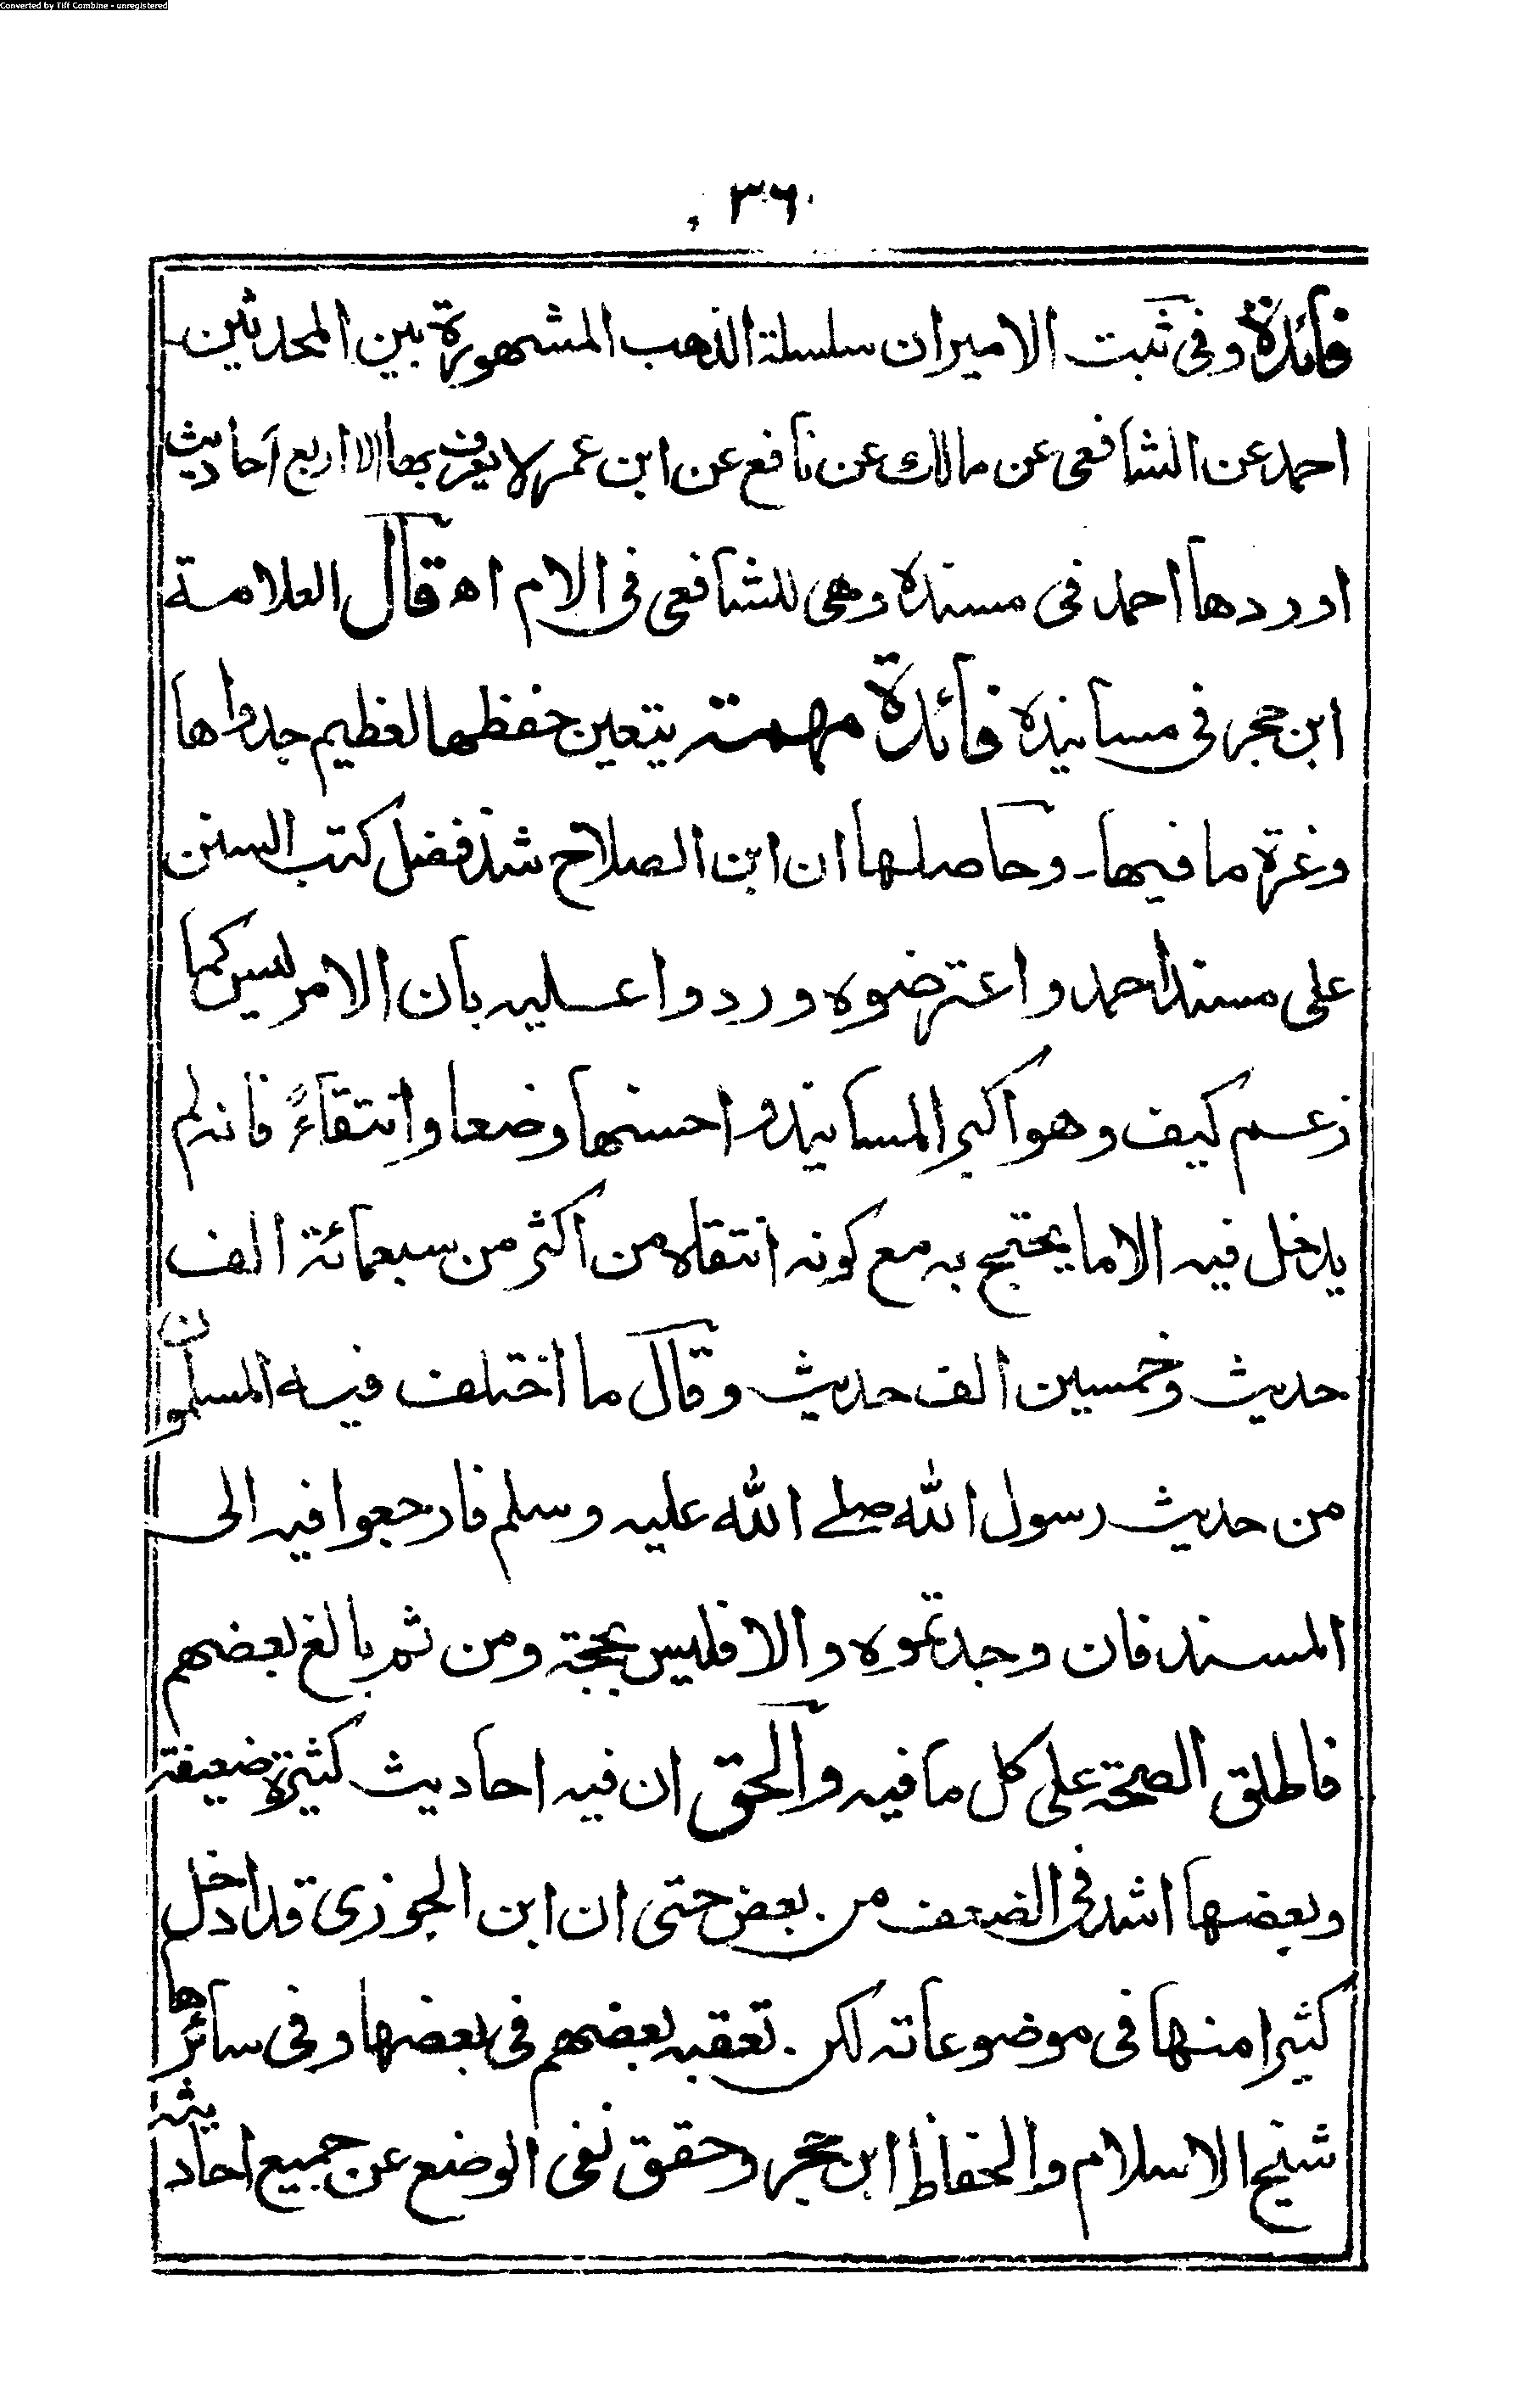 Converted by Tiff Combine - unregistered
٣٦
فائدة وفى ثبت الامير ان سلسلة الذهب المشهورة بين المحدثين
احمد عن الشافعى عن مالك عن نافع عن ابن عمر لا يعرف بها الا اربع احاديث
اوردها احمد فى مسنده وهى للشافعى فى الام اھ قال العلامة
ابن حجر فى مسانيده فائدة مهمة يتعين حفظها لعظيم جدواها
وغرة ما فيها۔ وحاصلها ان ابن الصلاح شذ فضل كتب السنن
على مسند احمد واعترضوه وردوا عليه بان الامر ليس كما
زعم كيف وهو اكبر المسانيد واحسنها وضعا وانتقاءً فانه لم
يدخل فيه الا ما يحتج به مع كونه انتقاه من اكثر من سبعمائة الف
حديث وخمسين الف حديث وقال ما اختلف فيه المسلمون
من حديث رسول الله صلے الله عليه وسلم فارجعوا فيه الى
المسند فان وجدتموه والا فليس بحجة ومن ثم بالغ بعضهم
فاطلق الصحة على كل ما فيه والحق ان فيه احاديث كثيرة ضعيفة
وبعضها اشد فى الضعف من بعض حتى ان ابن الجوزى قد ادخل
كثيرا منها فى موضوعاته لكن تعقبه بعضهم فى بعضها وفى سائرها
شيخ الاسلام والحفاظ ابن حجر وحقق نفى الوضع عن جميع احاديثه